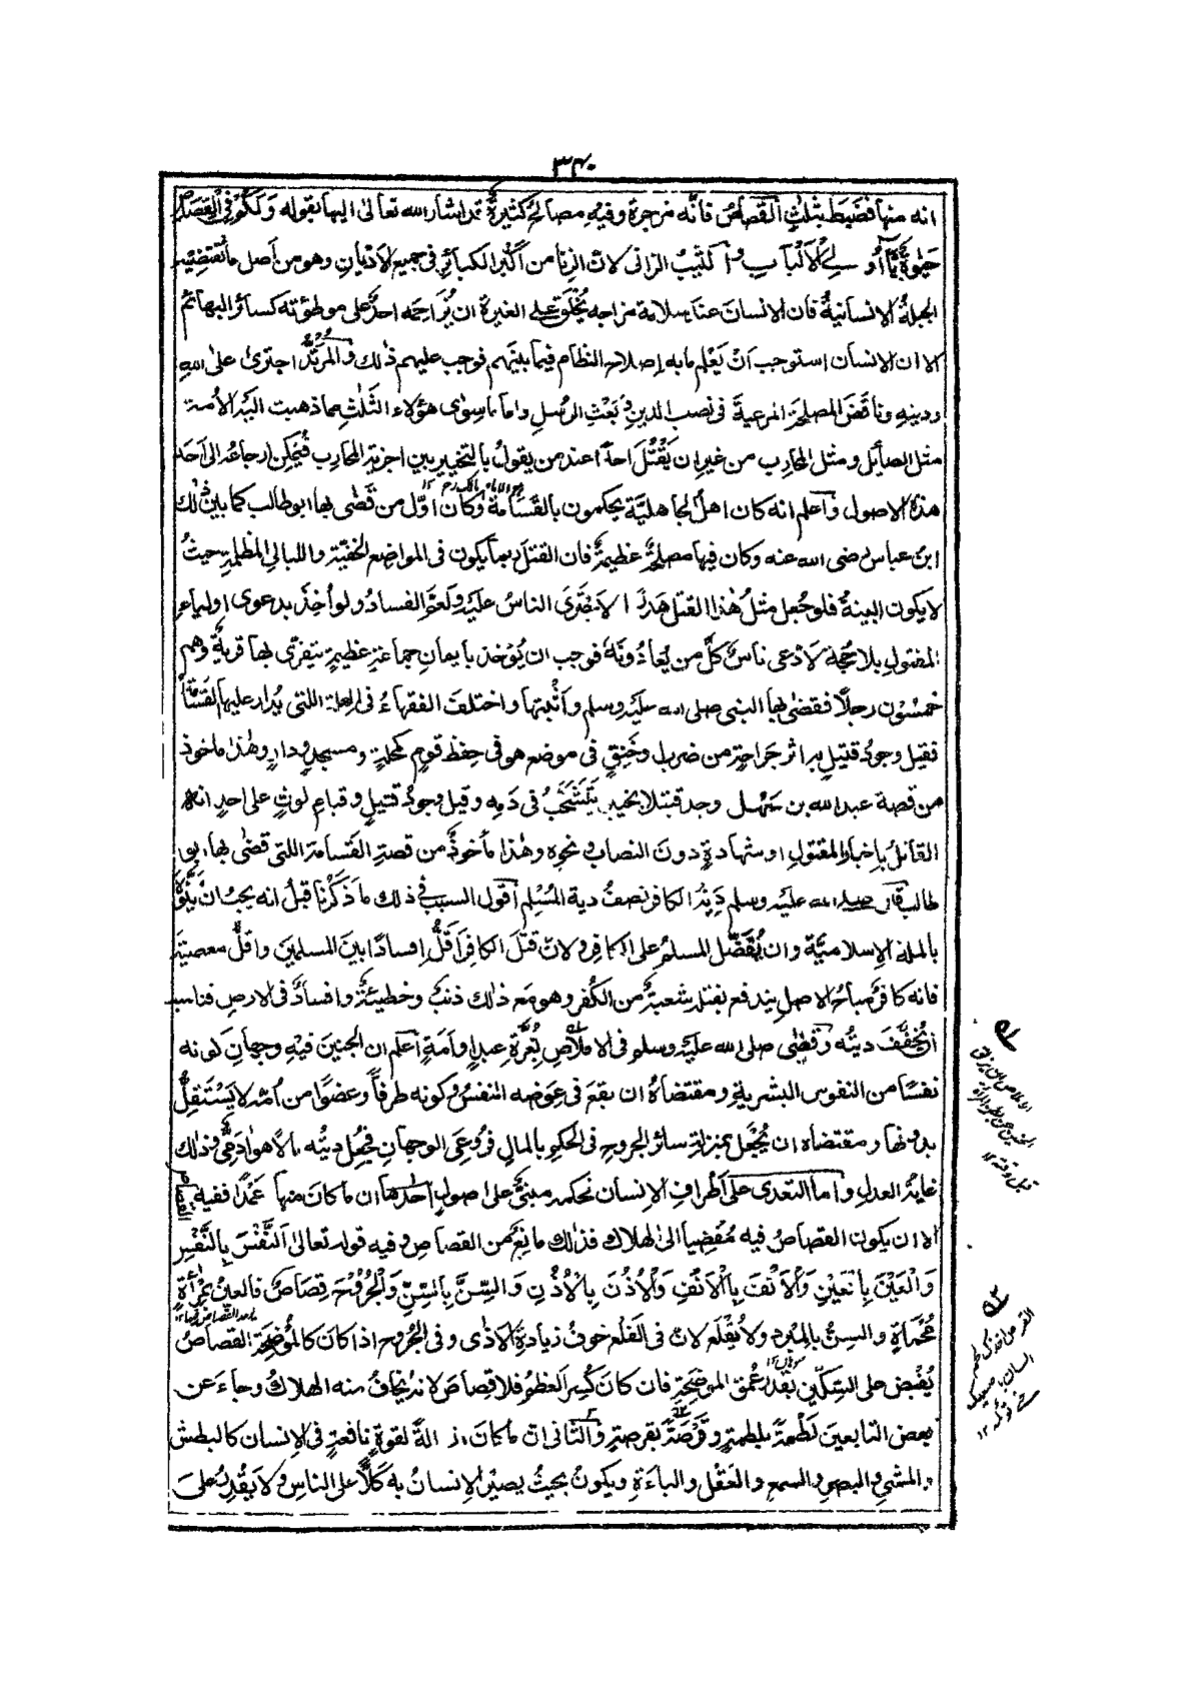 ٣٤٠
انه منها فضبط بثلث القصاص فانه مزجرة وفيه مصالح كثيرة قد اشار الله تعالى اليها بقوله وَلَكُمْ فِي الْقِصَاصِ
حَيٰوةٌ يَّا اُولِي الْاَلْبَابِ والثيب الزاني لان الزنا من اكبر الكبائر في جميع الاديان وهو من اصل ما تقتضيه
الجبلة الانسانية فان الانسان عند سلامة مزاجه يخلق على الغيرة ان يزاحمه احد على موطوئته كسائر البهائم
الا ان الانسان استوجب ان يعلم ما به اصلاح النظام فيما بينهم فوجب عليهم ذلك والمرتد اجترئ على الله
ودينه وناقض المصلحة المرعية في نصب الدين وبعث الرسل واما ما سوى هؤلاء الثلث مما ذهبت اليه الامة
مثل الصائل ومثل المحارب من غير ان يقتل احدا عند من يقول بالتخيير بين اجزية المحارب فيمكن ارجاعه الى احد
هذه الاصول واعلم انه كان اهل الجاهلية يحكمون بالقسامة وكان اول من قضى بها ابو طالب كما بين ذلك
ابن عباس رضى الله عنه وكان فيها مصلحة عظيمة فان القتل ربما يكون في المواضع الخفية والليالي المظلمة حيث
لا يكون البينة فلو جعل مثل هذا القتل هدرا لاجترئ الناس عليه ولعم الفساد ولو اخذ بدعوى اولياء
المقتول بلا حجة لادعى ناس كل من يعادونه فوجب ان يؤخذ بايمان جماعة عظيمة تتقرى بها قرية وهم
خمسون رجلا فقضى بها النبي صلى الله عليه وسلم واثبتها واختلف الفقهاء في العلة اللتي يدار عليها القسامة
فقيل وجود قتيل به اثر جراحة من ضرب او خنق في موضع هو في حفظ قوم كمحلة ومسجد ودار وهذا ماخوذ
من قصة عبد الله بن سهل وجد قتيلا بخيبر يتشحط في دمه وقيل وجود قتيل وقيام لوث على احد انه
القاتل باخبار المقتول او شهادة دون النصاب ونحوه وهذا مأخوذ من قصة القسامة اللتي قضى بها ابو
طالب قال صلى الله عليه وسلم دية الكافر نصف دية المسلم اقول السبب في ذلك ما ذكرنا قبل انه يجب ان ينوه
بالملة الاسلامية وان يفضل المسلم على الكافر ولان قتل الكافر اقل افسادا بين المسلمين واقل معصية
فانه كافر مباح الاصل يندفع بقتله شعبة من الكفر وهو مع ذلك ذنب وخطيئة وافساد في الارض فناسب
ان يخفف ديته وقضى صلى الله عليه وسلم في الاملاص بغرة عبد او امة اعلم ان الجنين فيه وجهان كونه
نفسا من النفوس البشرية ومقتضاه ان يقع في عوضه النفس وكونه طرفا وعضوا من امه لا يستقل
بدونها ومقتضاه ان يجعل بمنزلة سائر الجروح في الحكم بالمال فروعي الوجهان فجعل ديته مالا هو آدمي وذلك
غاية العدل واما التعدى على اطراف الانسان فحكمه مبنى على اصول احدها ان ما كان منها عمدا ففيه القصاص
الا ان يكون القصاص فيه مفضيا الى الهلاك فذلك مانع من القصاص وفيه قوله تعالى اَلنَّفْسَ بِالنَّفْسِ
وَالْعَيْنَ بِالْعَيْنِ وَالْاَنْفَ بِالْاَنْفِ وَالْاُذُنَ بِالْاُذُنِ وَالسِّنَّ بِالسِّنِّ وَالْجُرُوْحَ قِصَاصٌ فالعين بمرآة
محماة والسن بالمبرد ولا يقلع لان في القلع خوف زيادة الاذى وفي الجروح اذا كان كالموضحة القصاص
يقبض على السكين بقدر عمق الموضحة فان كان كسر العظم فلا قصاص لانه يخاف منه الهلاك وجاء عن
بعض التابعين لطمة بلطمة وقرصة بقرصة والثاني ان ما كان ازالة لقوة نافعة في الانسان كالبطش
والمشي والبصر والسمع والعقل والباءة ويكون بحيث يصير الانسان به كلا على الناس ولا يقدر على